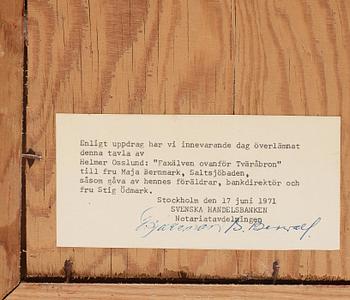 Enligt uppdrag har vi innevarande dag överlämnat
denna tavla av
Helmer Osslund: "Faxälven ovanför Tväråbron"
till fru Maja Bernmark, Saltsjöbaden,
såsom gåva av hennes föräldrar, bankdirektör och
fru Stig Ödmark.
Stockholm den 17 juni 1971
SVENSKA HANDELSBANKEN
Notariatavdelningen